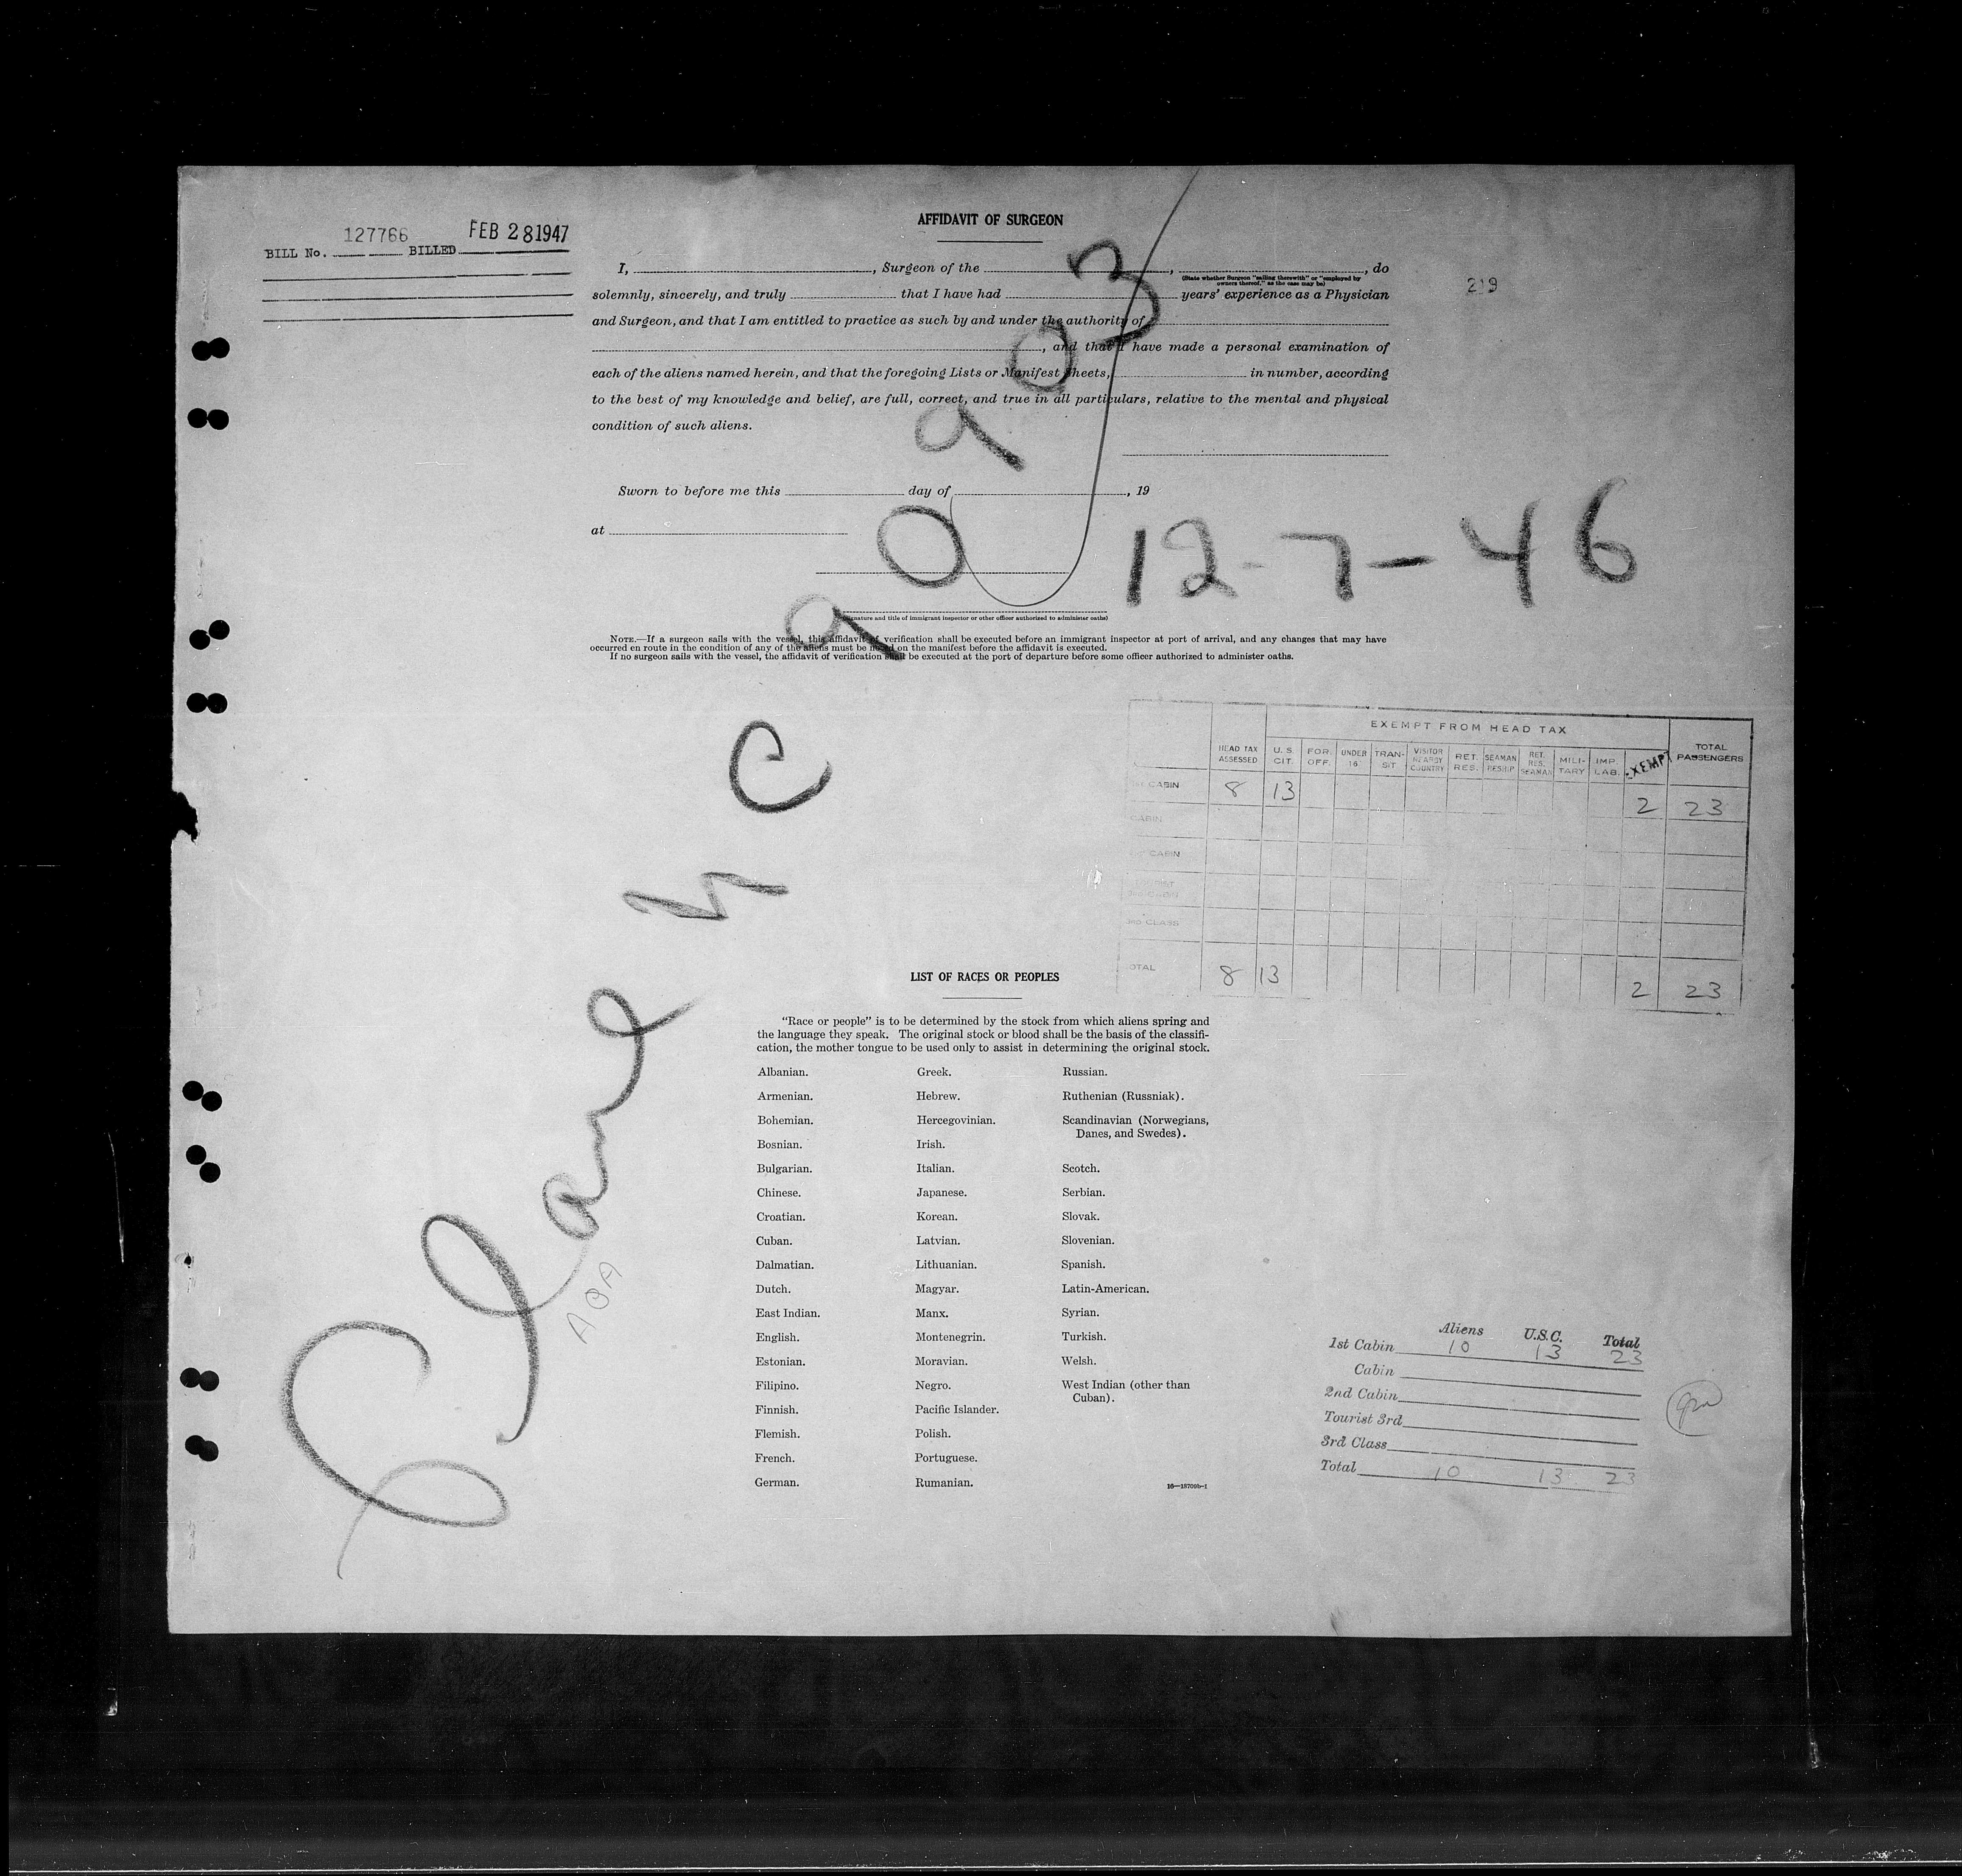 AFFIDAVIT OF SURGEON
BILL No. 127766 BILLED FEB 28 1947
I, , Surgeon of the , , do
(State whether Surgeon "sailing therewith" or "employed by
owners thereof," as the case may be)
219
solemnly, sincerely, and truly that I have had years' experience as a Physician
and Surgeon, and that I am entitled to practice as such by and under the authority of
, and that I have made a personal examination of
each of the aliens named herein, and that the foregoing Lists or Manifest Sheets, in number, according
to the best of my knowledge and belief, are full, correct, and true in all particulars, relative to the mental and physical
condition of such aliens.
Sworn to before me this day of , 19
at
12-7-46
(Signature and title of immigrant inspector or other officer authorized to administer oaths)
NOTE.—If a surgeon sails with the vessel, this affidavit of verification shall be executed before an immigrant inspector at port of arrival, and any changes that may have
occurred en route in the condition of any of the aliens must be noted on the manifest before the affidavit is executed.
If no surgeon sails with the vessel, the affidavit of verification shall be executed at the port of departure before some officer authorized to administer oaths.
EXEMPT FROM HEAD TAX
HEAD TAX ASSESSED U. S. CIT. FOR. OFF. UNDER 16 TRAN-SIT VISITOR NEARBY COUNTRY RET. RES. SEAMAN RESHIP RET. RES. SEAMAN MILI-TARY IMP. LAB. EXEMPT TOTAL PASSENGERS
CABIN 8 13 2 23
CABIN
CABIN
3RD CLASS
TOTAL 8 13 2 23
Clare
AOA
LIST OF RACES OR PEOPLES
"Race or people" is to be determined by the stock from which aliens spring and
the language they speak. The original stock or blood shall be the basis of the classifi-
cation, the mother tongue to be used only to assist in determining the original stock.
Albanian. Greek. Russian.
Armenian. Hebrew. Ruthenian (Russniak).
Bohemian. Hercegovinian. Scandinavian (Norwegians,
Danes, and Swedes).
Bosnian. Irish.
Bulgarian. Italian. Scotch.
Chinese. Japanese. Serbian.
Croatian. Korean. Slovak.
Cuban. Latvian. Slovenian.
Dalmatian. Lithuanian. Spanish.
Dutch. Magyar. Latin-American.
East Indian. Manx. Syrian.
English. Montenegrin. Turkish.
Estonian. Moravian. Welsh.
Filipino. Negro. West Indian (other than
Cuban).
Finnish. Pacific Islander.
Flemish. Polish.
French. Portuguese.
German. Rumanian.
16—18709b-1
Aliens U.S.C. Total
1st Cabin 10 13 23
Cabin
2nd Cabin
Tourist 3rd
3rd Class
Total 10 13 23